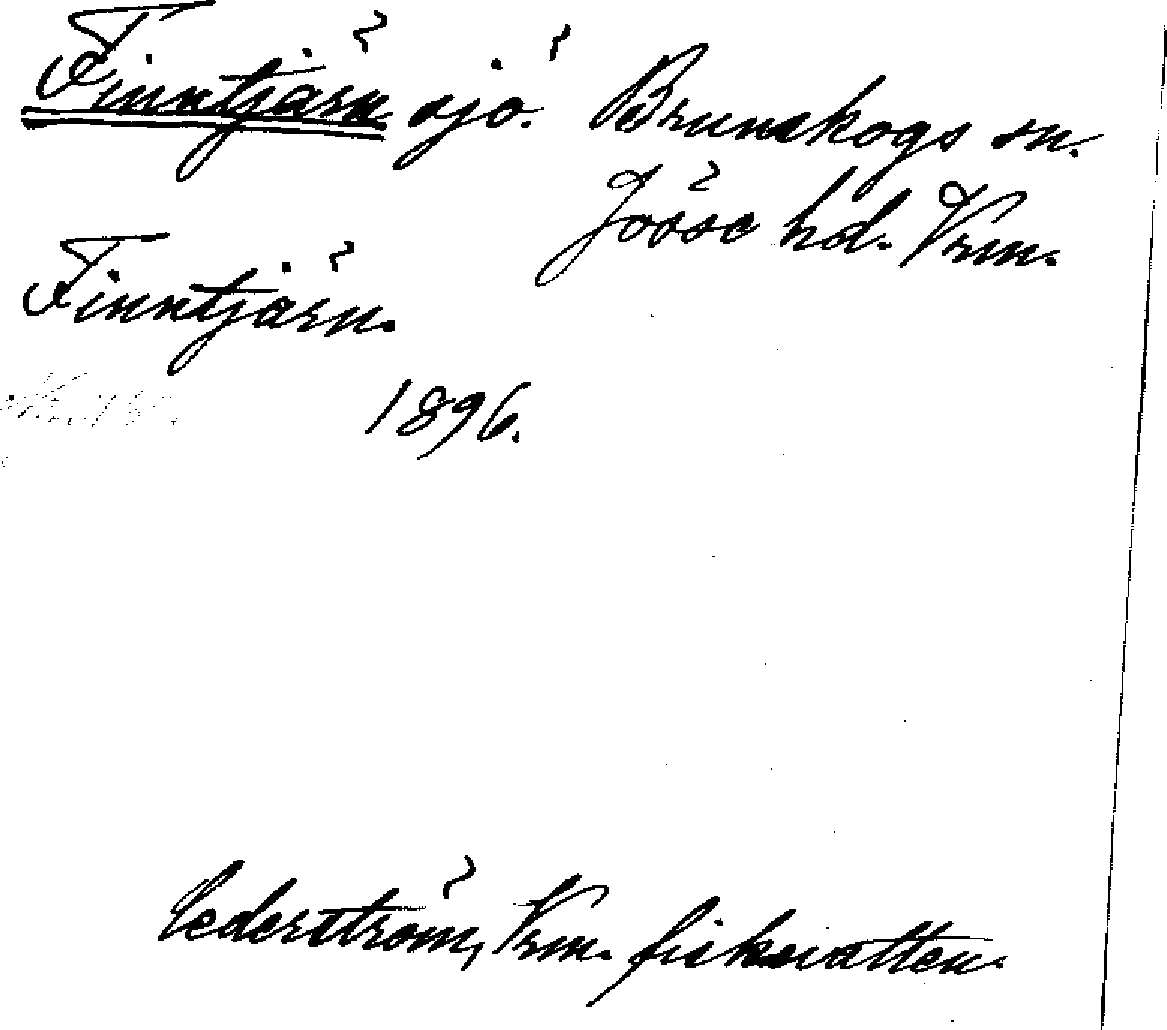 Finntjärn. sjö. Brunskogs sn.
Jösse hd. Vrm.
Finntjärn.
1896.
Cederström, Vrm. fiskevatten.